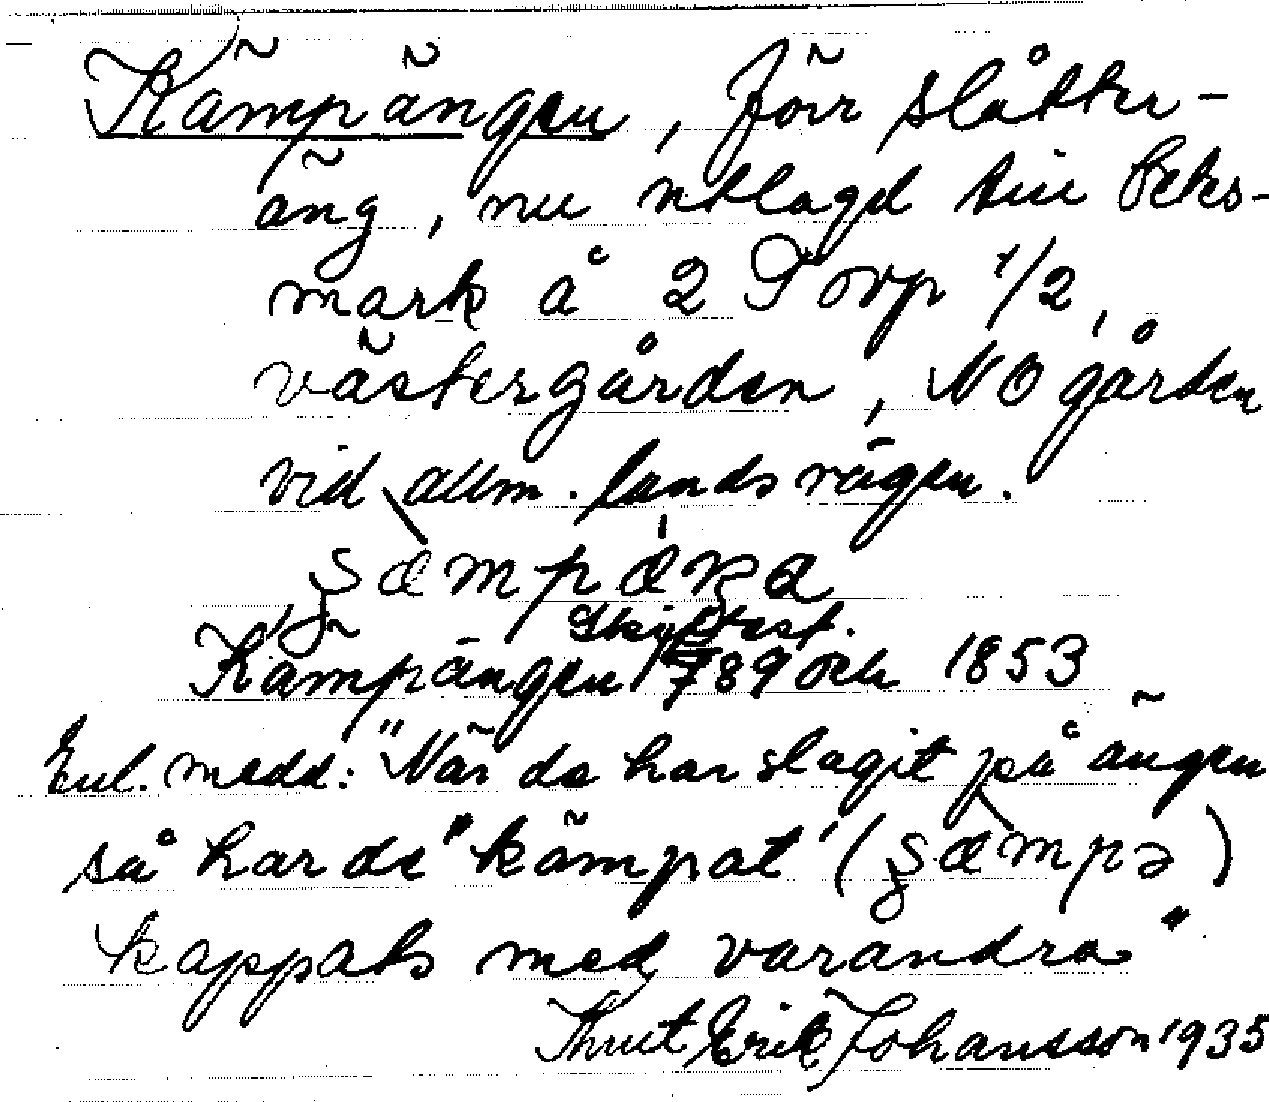 Kämpängen, förr slåtter-
äng, nu utlagd till betes-
mark å 2 Torp 1/2,
västergården, NO gården
vid allm. landsvägen.
Skiftest.
Kämpängen 1789 och 1853
Enl. medd: "När de har slagit på ängen
så har de "kämpat"
kappats med varandra"
Knut Erik Johansson 1935